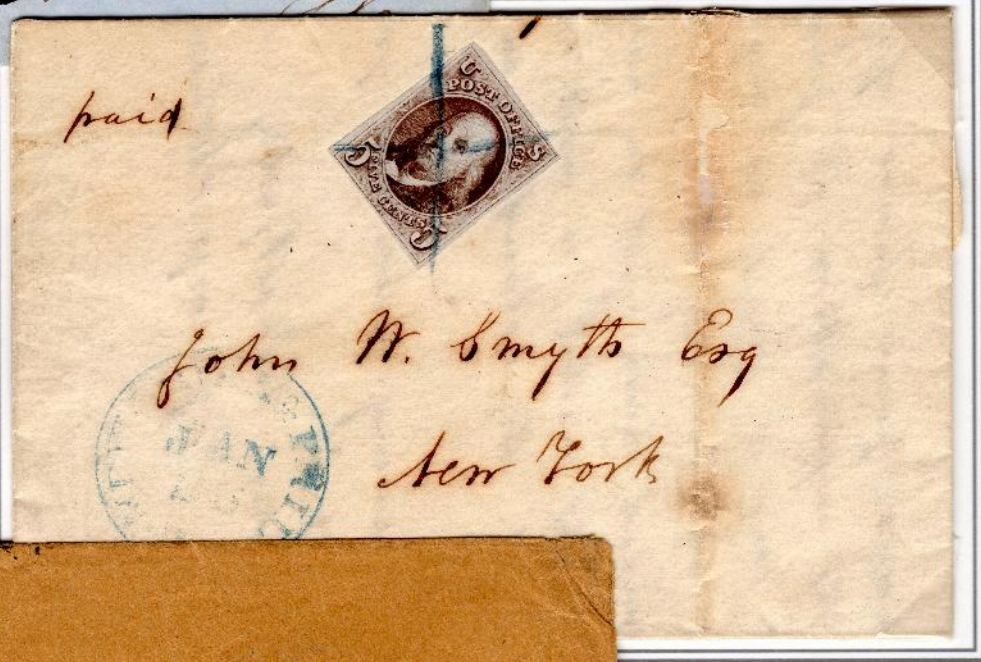 paid
U S
POST OFFICE
5 5
FIVE CENTS
John W. Smyth Esq
New York
JAN